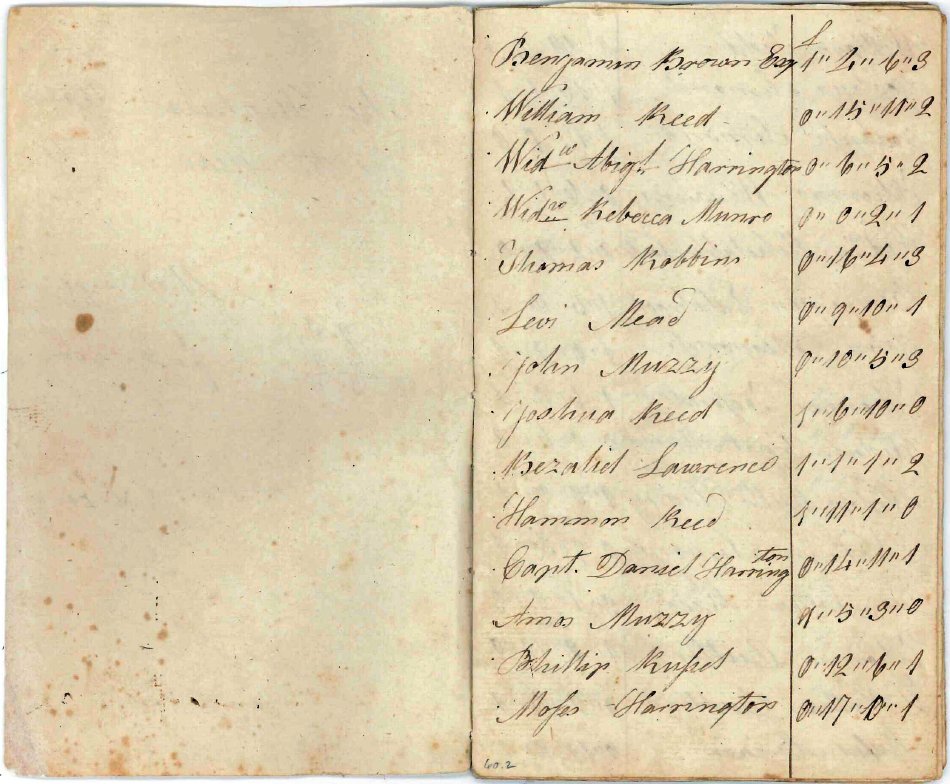 £
Benjamin Brown Esq 1" 2" 6" 3
William Reed 0" 15" 11" 2
Widw Abigl Harrington 0" 6" 5" 2
Widw Rebecca Munro 0" 0" 2" 1
Thomas Robbins 0" 16" 4" 3
Levi Mead 0" 9" 10" 1
John Muzzy 0" 10" 5" 3
Joshua Reed 1" 6" 10" 0
Bezaliel Lawrence 1" 1" 1" 2
Hammon Reed 1" 11" 1" 0
Capt. Daniel Harrington 0" 14" 11" 1
Amos Muzzy 5" 3" 0
Phillip Russel 0" 12" 6" 1
Moses Harrington 0" 17" 1
60.2